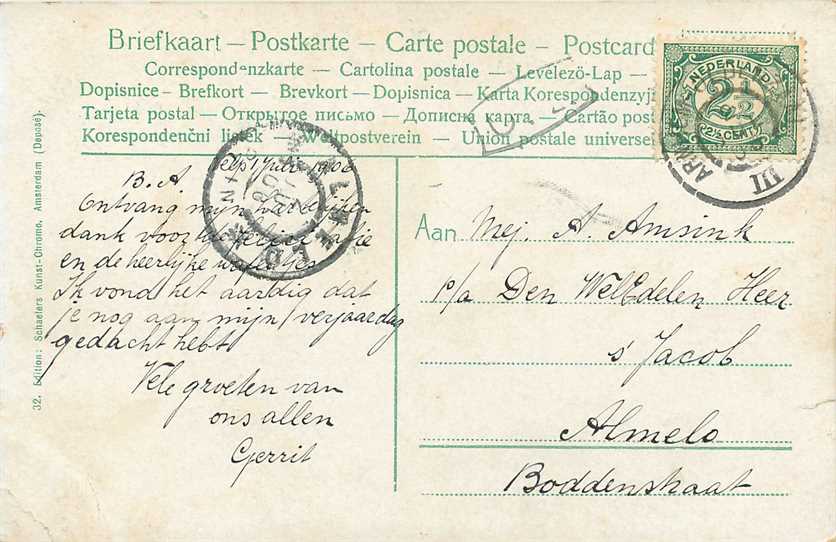 Briefkaart — Postkarte — Carte postale — Postcard
Correspondenzkarte — Cartolina postale — Levelezö-Lap —
Dopisnice - Brefkort — Brevkort — Dopisnica — Karta Korespondenzyj
Tarjeta postal — Открытое письмо — Дописна карта — Cartão post
Korespondenční lístek — Weltpostverein — Union postale universe
NEDERLAND
2½
(2½ CENT)
ARN
III
ALMELO
1906
B. A
Ontvang mijn hartelijken
dank voor
en de heerlijke wafeltjes
Ik vond het aardig dat
je nog aan mijn verjaardag
gedacht hebt.
Vele groeten van
ons allen
Gerrit
Aan Mej. A Amsink
p/a Den WelEdelen Heer
s' Jacob
Almelo
Boddenstraat
32. Edition: Schaefers Kunst-Chromo, Amsterdam (Deposé).